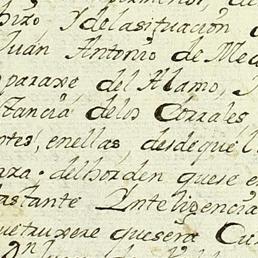 hizo, Y dela situación
Juan Antonio de Med
paraxe, del Alamo, y
stancia delos Corrales
ntes, enellas, desde que l
aza. del horden que se e
bastante Inteligencia
que truxere quesera Cu